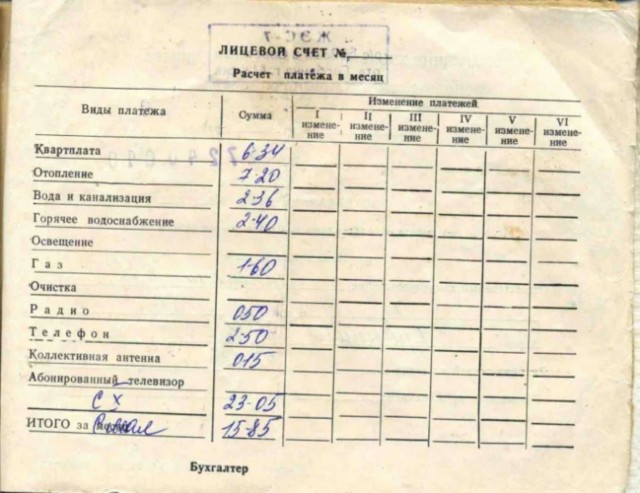 ЖЭС-7
ЛИЦЕВОЙ СЧЕТ №
Расчет платежа в месяц
Виды платежа
Сумма
Изменение платежей
I измене-
ние
II измене-
ние
III измене-
ние
IV измене-
ние
V измене-
ние
VI измене-
ние
Квартплата 6-34
Отопление 7-20
Вода и канализация 2-36
Горячее водоснабжение 2-40
Освещение
Газ 1-60
Очистка
Радио 050
Телефон 2-50
Коллективная антенна 015
Абонированный телевизор
СХ 23-05
ИТОГО за 15-85
Бухгалтер